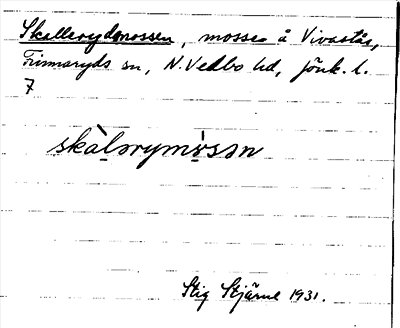 Skallerydsmossen, mosse å Vivastås,
Frinnaryds sn, N. Vedbo hd, Jönk. l.
7
skàl̥ərymòsən
Stig Stjärne 1931.